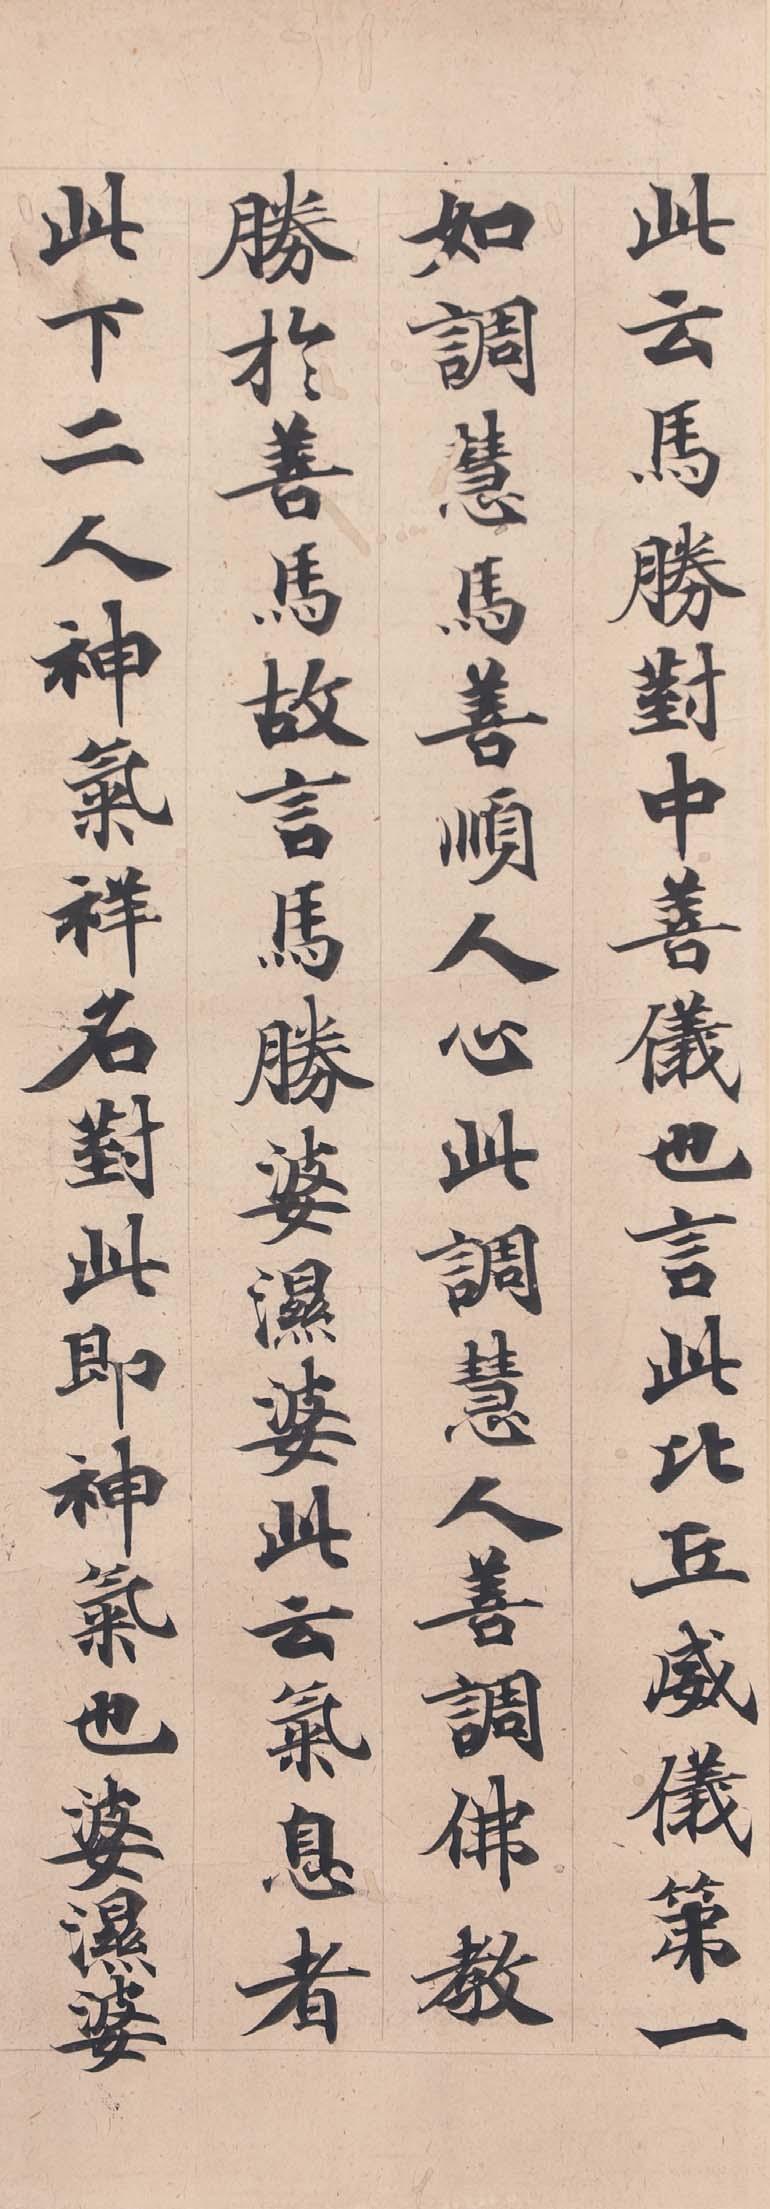 此云馬勝對中善儀也言此比丘威儀第一
如調慧馬善順人心此調慧人善調佛教
勝於善馬故言馬勝婆濕婆此云氣息者
此下二人神氣祥名對此即神氣也婆濕婆